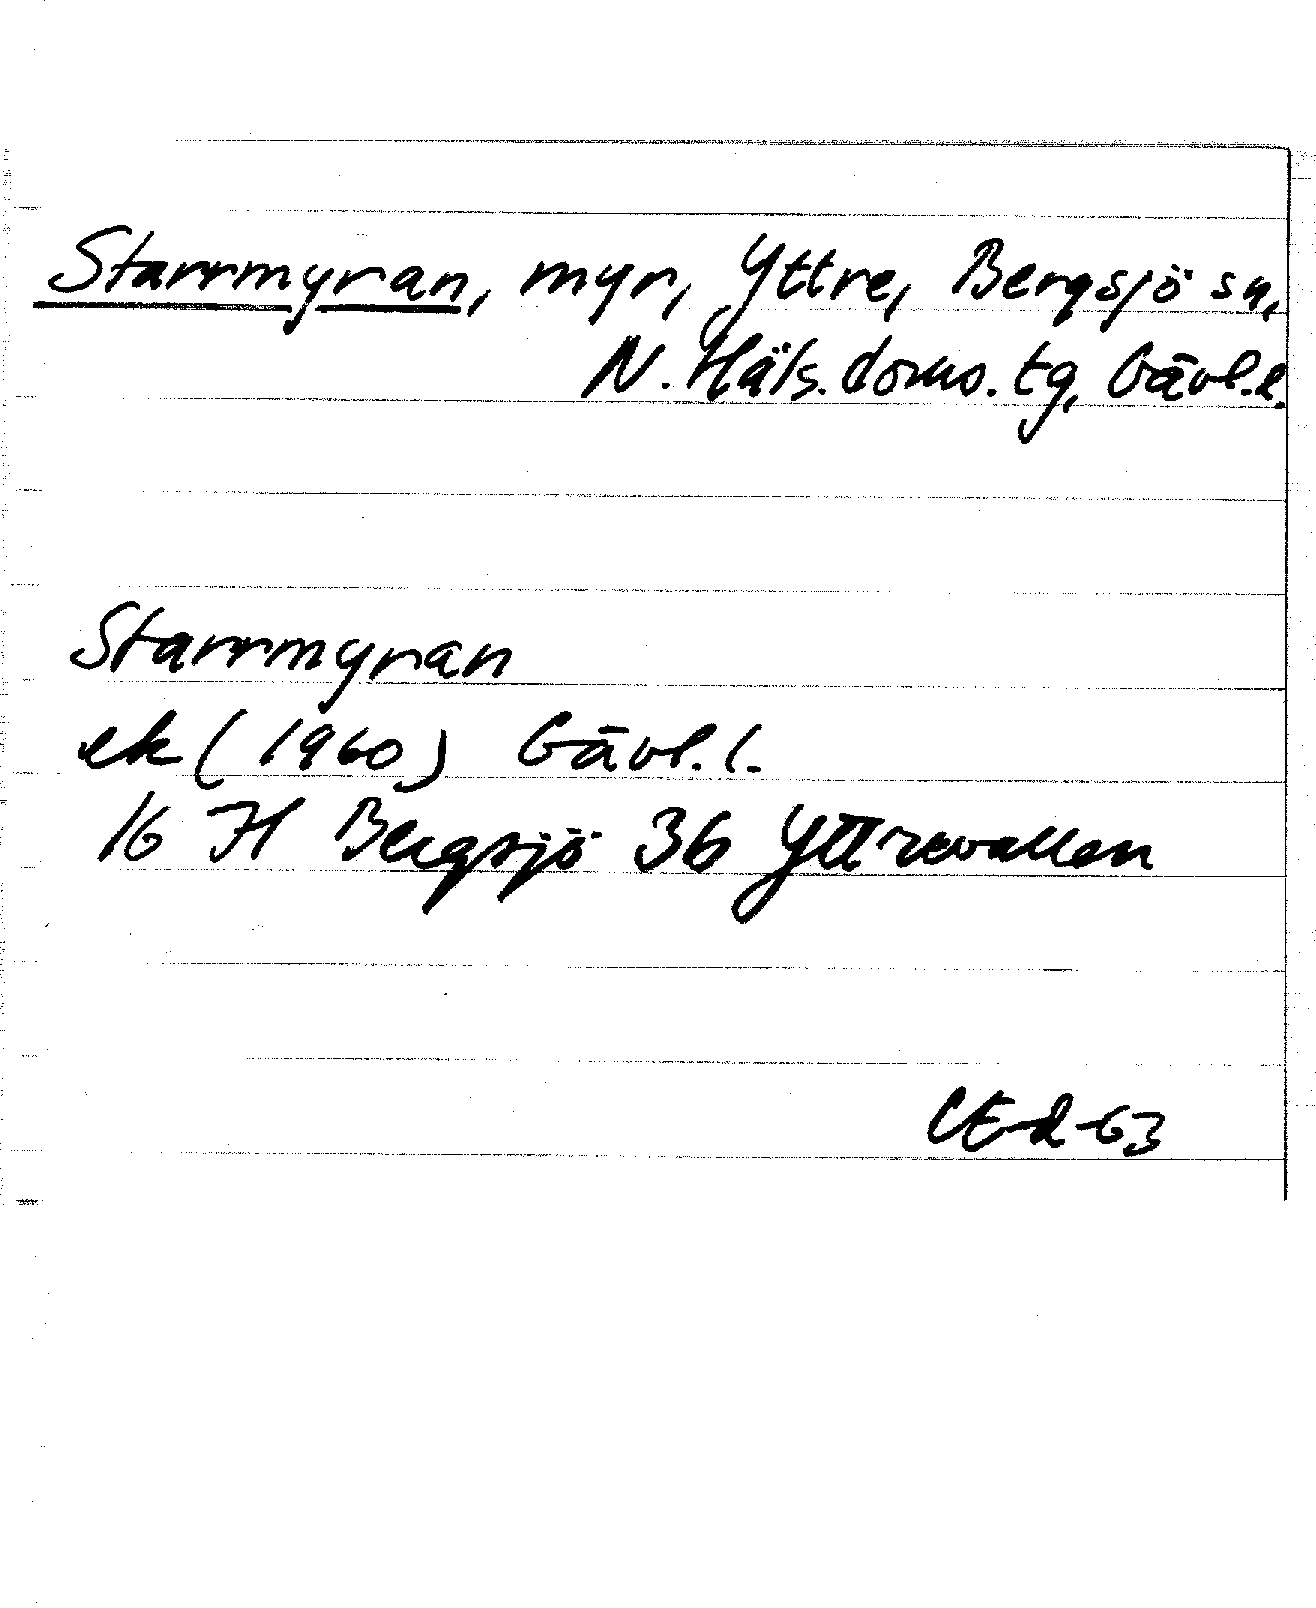 Starrmyran, myr, Yttre, Bergsjö sn,
N. Häls. doms. tg, Gävl. l.
Starrmyran
ek (1960) Gävl. l.
16 H Bergsjö 36 Yttrevallen
CE-d-63